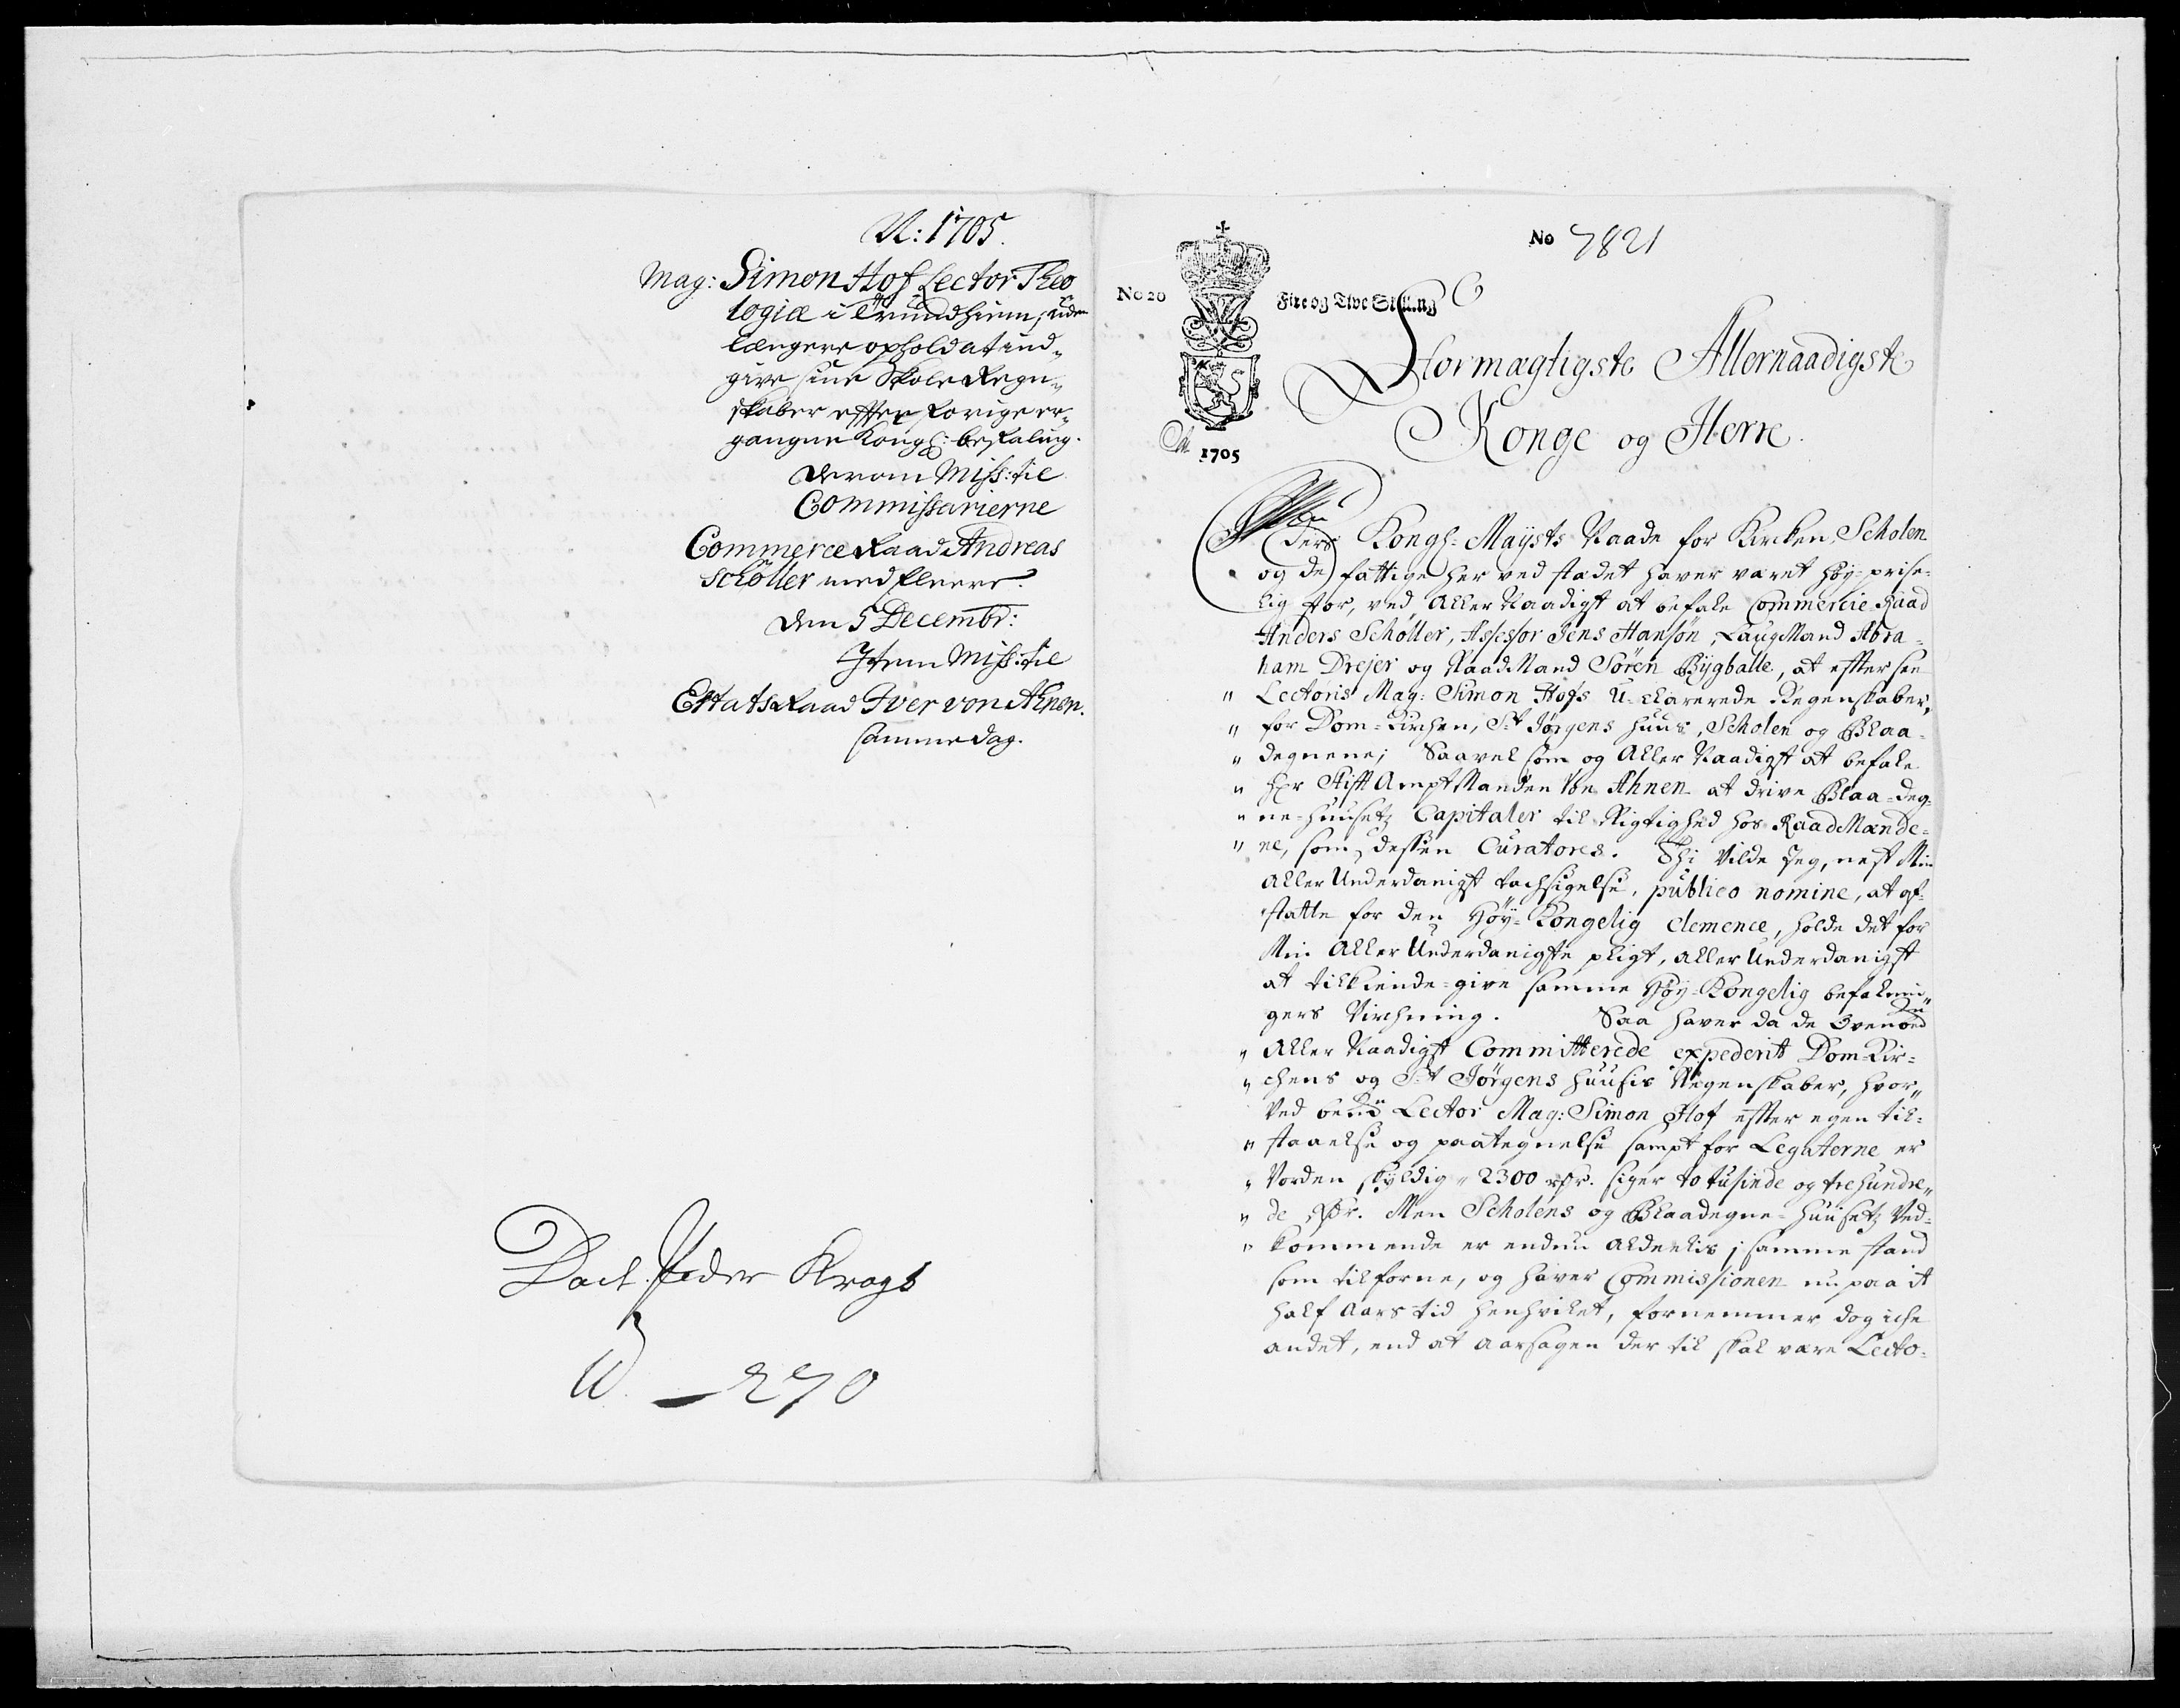 A: 1705.
Mag: Simon Hof Lector Theo
logiæ i Trundhiem, uden
længere ophold at ind„
give sine Skole Regn„
skaber effter forige er„
gangne Kongl: befaling.
derom Miss: til
Commissarierne
Commerce Raad Andreas
Schöller med fleere.
den 5 Decembr:
Item Miss: til
Etats Raad Iver von Ahnen.
samme dag.
Doct. Peder Krogs
W. 270
No 7821
No 20
Fire og Tive Skilling
1705
Stormagtigste Allernaadigste
Konge og Herre.
Eders Kongl: Maysts Naade for Kircken, Scholen
og de fattige her ved stædet haver været høy-prise-
lig stor, ved Aller Naadigst at befale Commercie Raad
Anders Schøller, Assessor Jens Hansøn, LaugMand Abra-
ham Drejer og RaadMand Søren Bygballe, at effter see
„ Lectoris Mag: Simon Hofs U-clarerede Regenskaber,
„ for Dom-Kirchen, St Jørgens huus, Scholen og Blaa-
„ degnene; Saavel som og Aller Naadigst at befale
„ hr StiftAmptManden Von Ahnen at drive Blaa-deg-
„ ne-huusetz Capitaler til Rigtighed hos RaadMænde-
„ ne, som dessen Curatores. Thi Vilde Jeg, nest Min
Aller Underdanigst tachsigelse, publico nomine, at af-
statte for den Høy-Kongelig clemence, holde det for
Min Aller Underdanigste pligt, Aller Underdanigst
at tilkiende-give samme Høy-Kongelig befalnin„
gers Virchning. Saa haver da de Ovenbed
„ Aller Naadigst Committerede expederit Dom-Kir-
„ chens og St Jørgens huusis Regenskaber, hvor„
Ved bete Lector Mag: Simon Hof effter egen til-
„ staaelse og paategnelse sampt for Legaterne er
„ Vorden skyldig „ 2300 rdr. siger totusinde og trehundre„
„ de rdr. Men Scholens og Blaadegne-huusetz Ved-
„ kommende er endnu aldeelis i samme stand
som tilforne, og haver Commissionen nu paa it
half Aars tid henhvilet, fornemmer dog iche
andet, end at Aarsagen der til skal være Lecto-